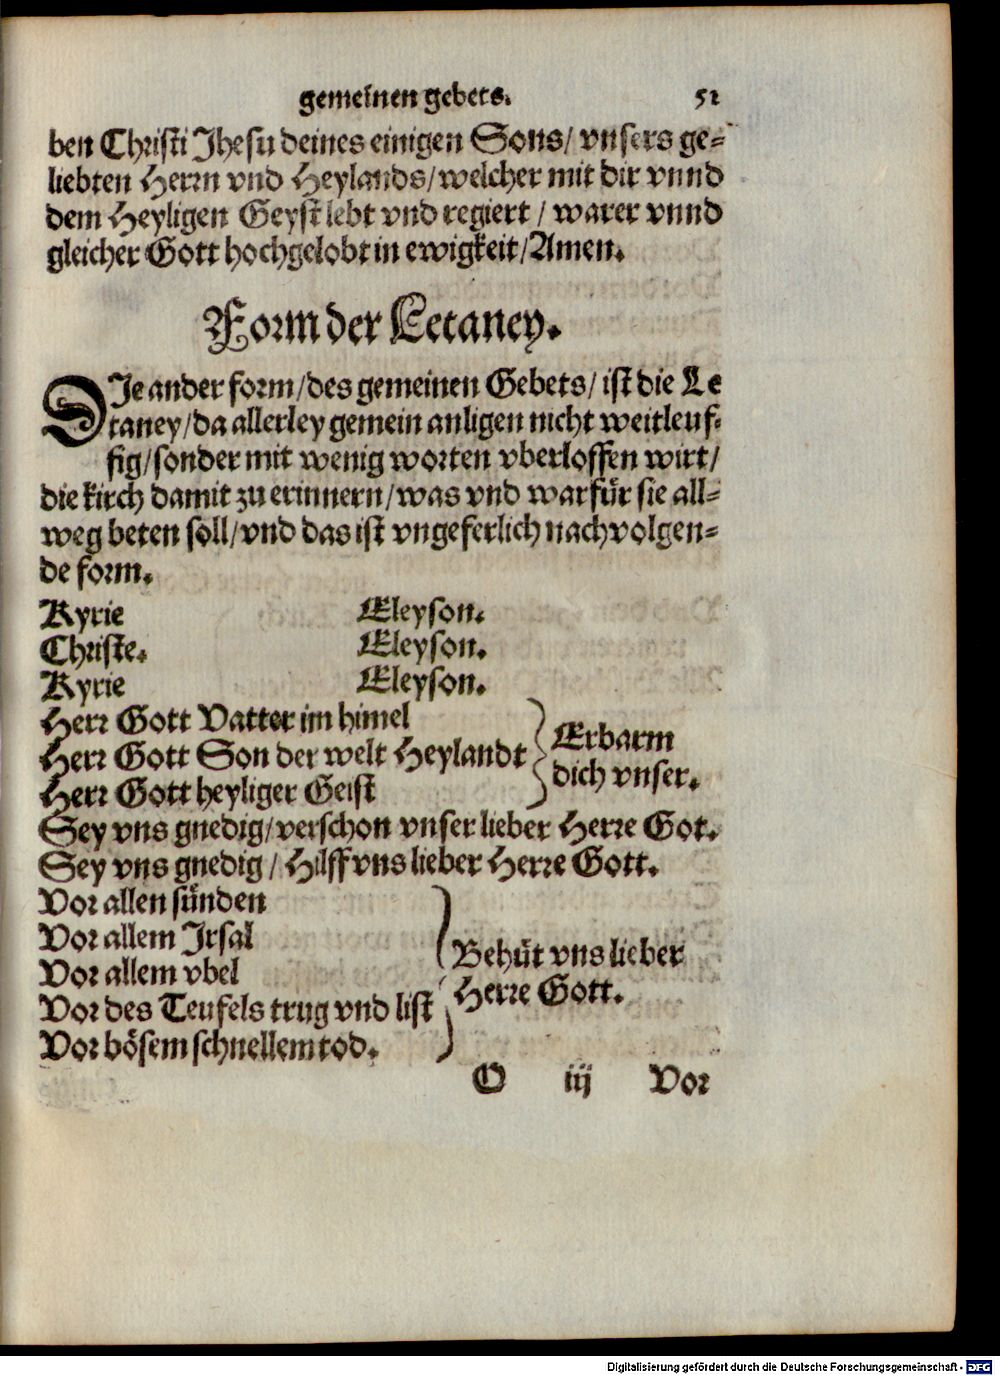 gemeinen gebets. 51
ben Christi Jhesu deines einigen Sons/ vnsers ge-
liebten Herrn vnd Heylands/welcher mit dir vnnd
dem Heyligen Geyst lebt vnd regiert / warer vnnd
gleicher Gott hochgelobt in ewigkeit/Amen.
Form der Letaney.
DJe ander form/des gemeinen Gebets/ ist die Le
taney/da allerley gemein anligen nicht weitleuf-
fig/sonder mit wenig worten vberloffen wirt/
die kirch damit zu erinnern/was vnd warfür sie all-
weg beten soll/vnd das ist vngeferlich nachvolgen-
de form.
Kyrie Eleyson.
Christe. Eleyson.
Kyrie Eleyson.
Herr Gott Vatter im himel
Herr Gott Son der welt Heylandt
Herr Gott heyliger Geist
Erbarm
dich vnser.
Sey vns gnedig/verschon vnser lieber Herre Got.
Sey vns gnedig / Hilff vns lieber Herre Gott.
Vor allen sünden
Vor allem Jrsal
Vor allem vbel
Vor des Teufels trug vnd list
Vor bösem schnellem tod.
Behüt vns lieber
Herre Gott.
O iij Vor
Digitalisierung gefördert durch die Deutsche Forschungsgemeinschaft - DFG